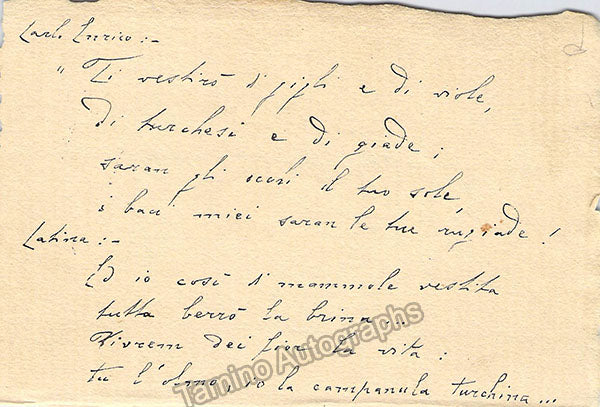 Carlo Enrico :-
"Ti vestirò di gigli e di viole,
di turchesi e di giade ;
saran gli occhi il tuo sole,
i baci miei saran le tue rugiade !
Latina :-
Ed io così di mammole vestita
tutta berrò la brina ...
Vivrem dei fior la vita :
tu l'olmo, io la campanula turchina ...
Tamino Autographs